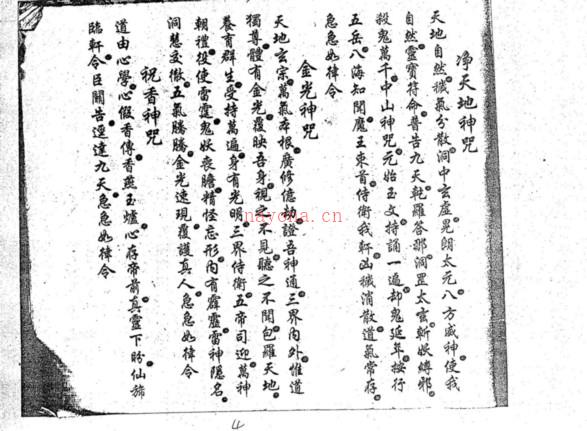 净天地神咒
天地自然穢氣分散洞中玄虛晃朗太元八方威神使我
自然靈寶符命普告九天乾羅答那洞罡太玄斬妖縛邪
殺鬼萬千中山神咒元始玉文持誦一遍却鬼延年按行
五岳八海知聞魔王束首侍衛我軒凶穢消散道氣常存
急急如律令
金光神咒
天地玄宗萬氣本根廣修億劫證吾神通三界內外惟道
獨尊體有金光覆映吾身視之不見聽之不聞包羅天地
養育群生受持萬遍身有光明三界侍衛五帝司迎萬神
朝禮役使雷霆鬼妖喪膽精怪忘形內有霹靂雷神隱名
洞慧交徹五氣騰騰金光速現覆護真人急急如律令
祝香神咒
道由心學心假香傳香爇玉爐心存帝前真靈下盼仙旆
臨軒令臣關告逕達九天急急如律令
nayona.cn
4